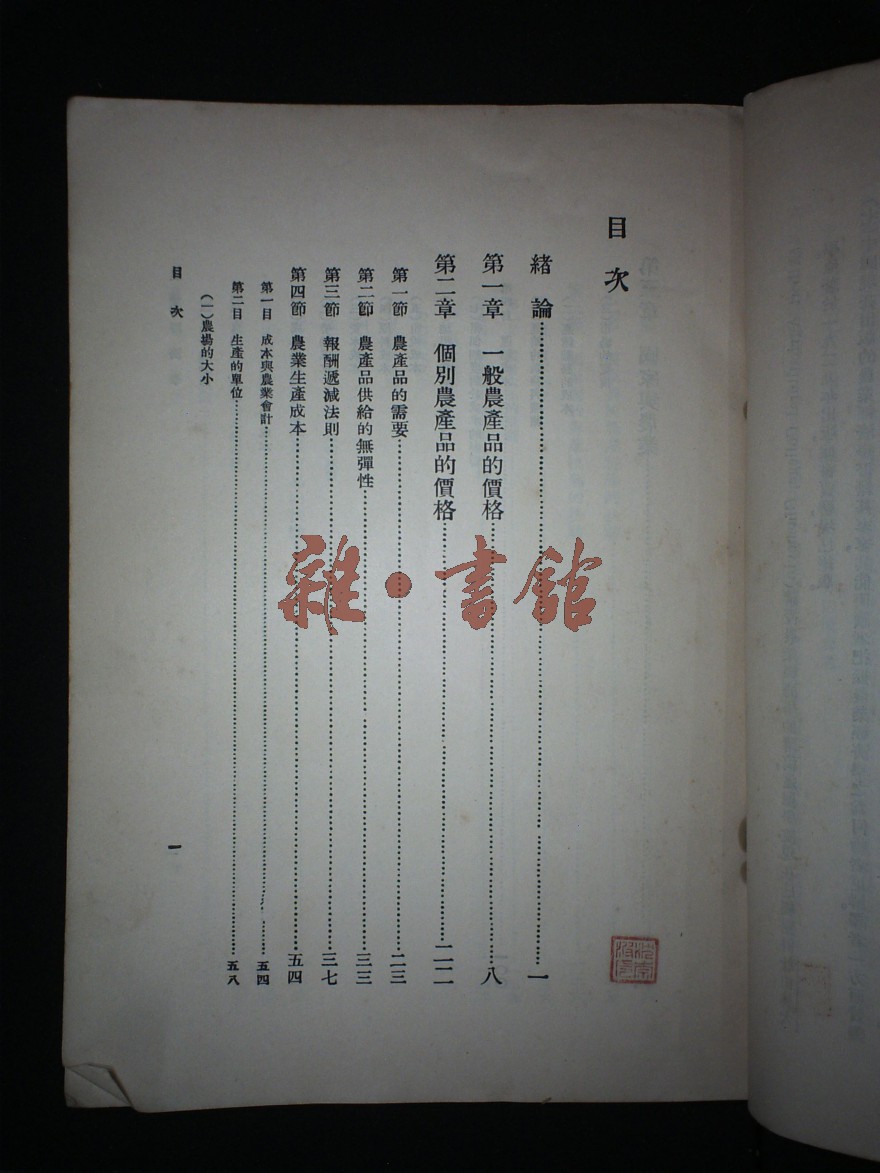 目次
緒論……一
第一章 一般農產品的價格……八
第二章 個別農產品的價格……二二
第一節 農產品的需要……二三
第二節 農產品供給的無彈性……三三
第三節 報酬遞減法則……三七
第四節 農業生產成本……五四
第一目 成本與農業會計……五四
第二目 生產的單位……五八
(一)農場的大小
目次
一
雜·書館